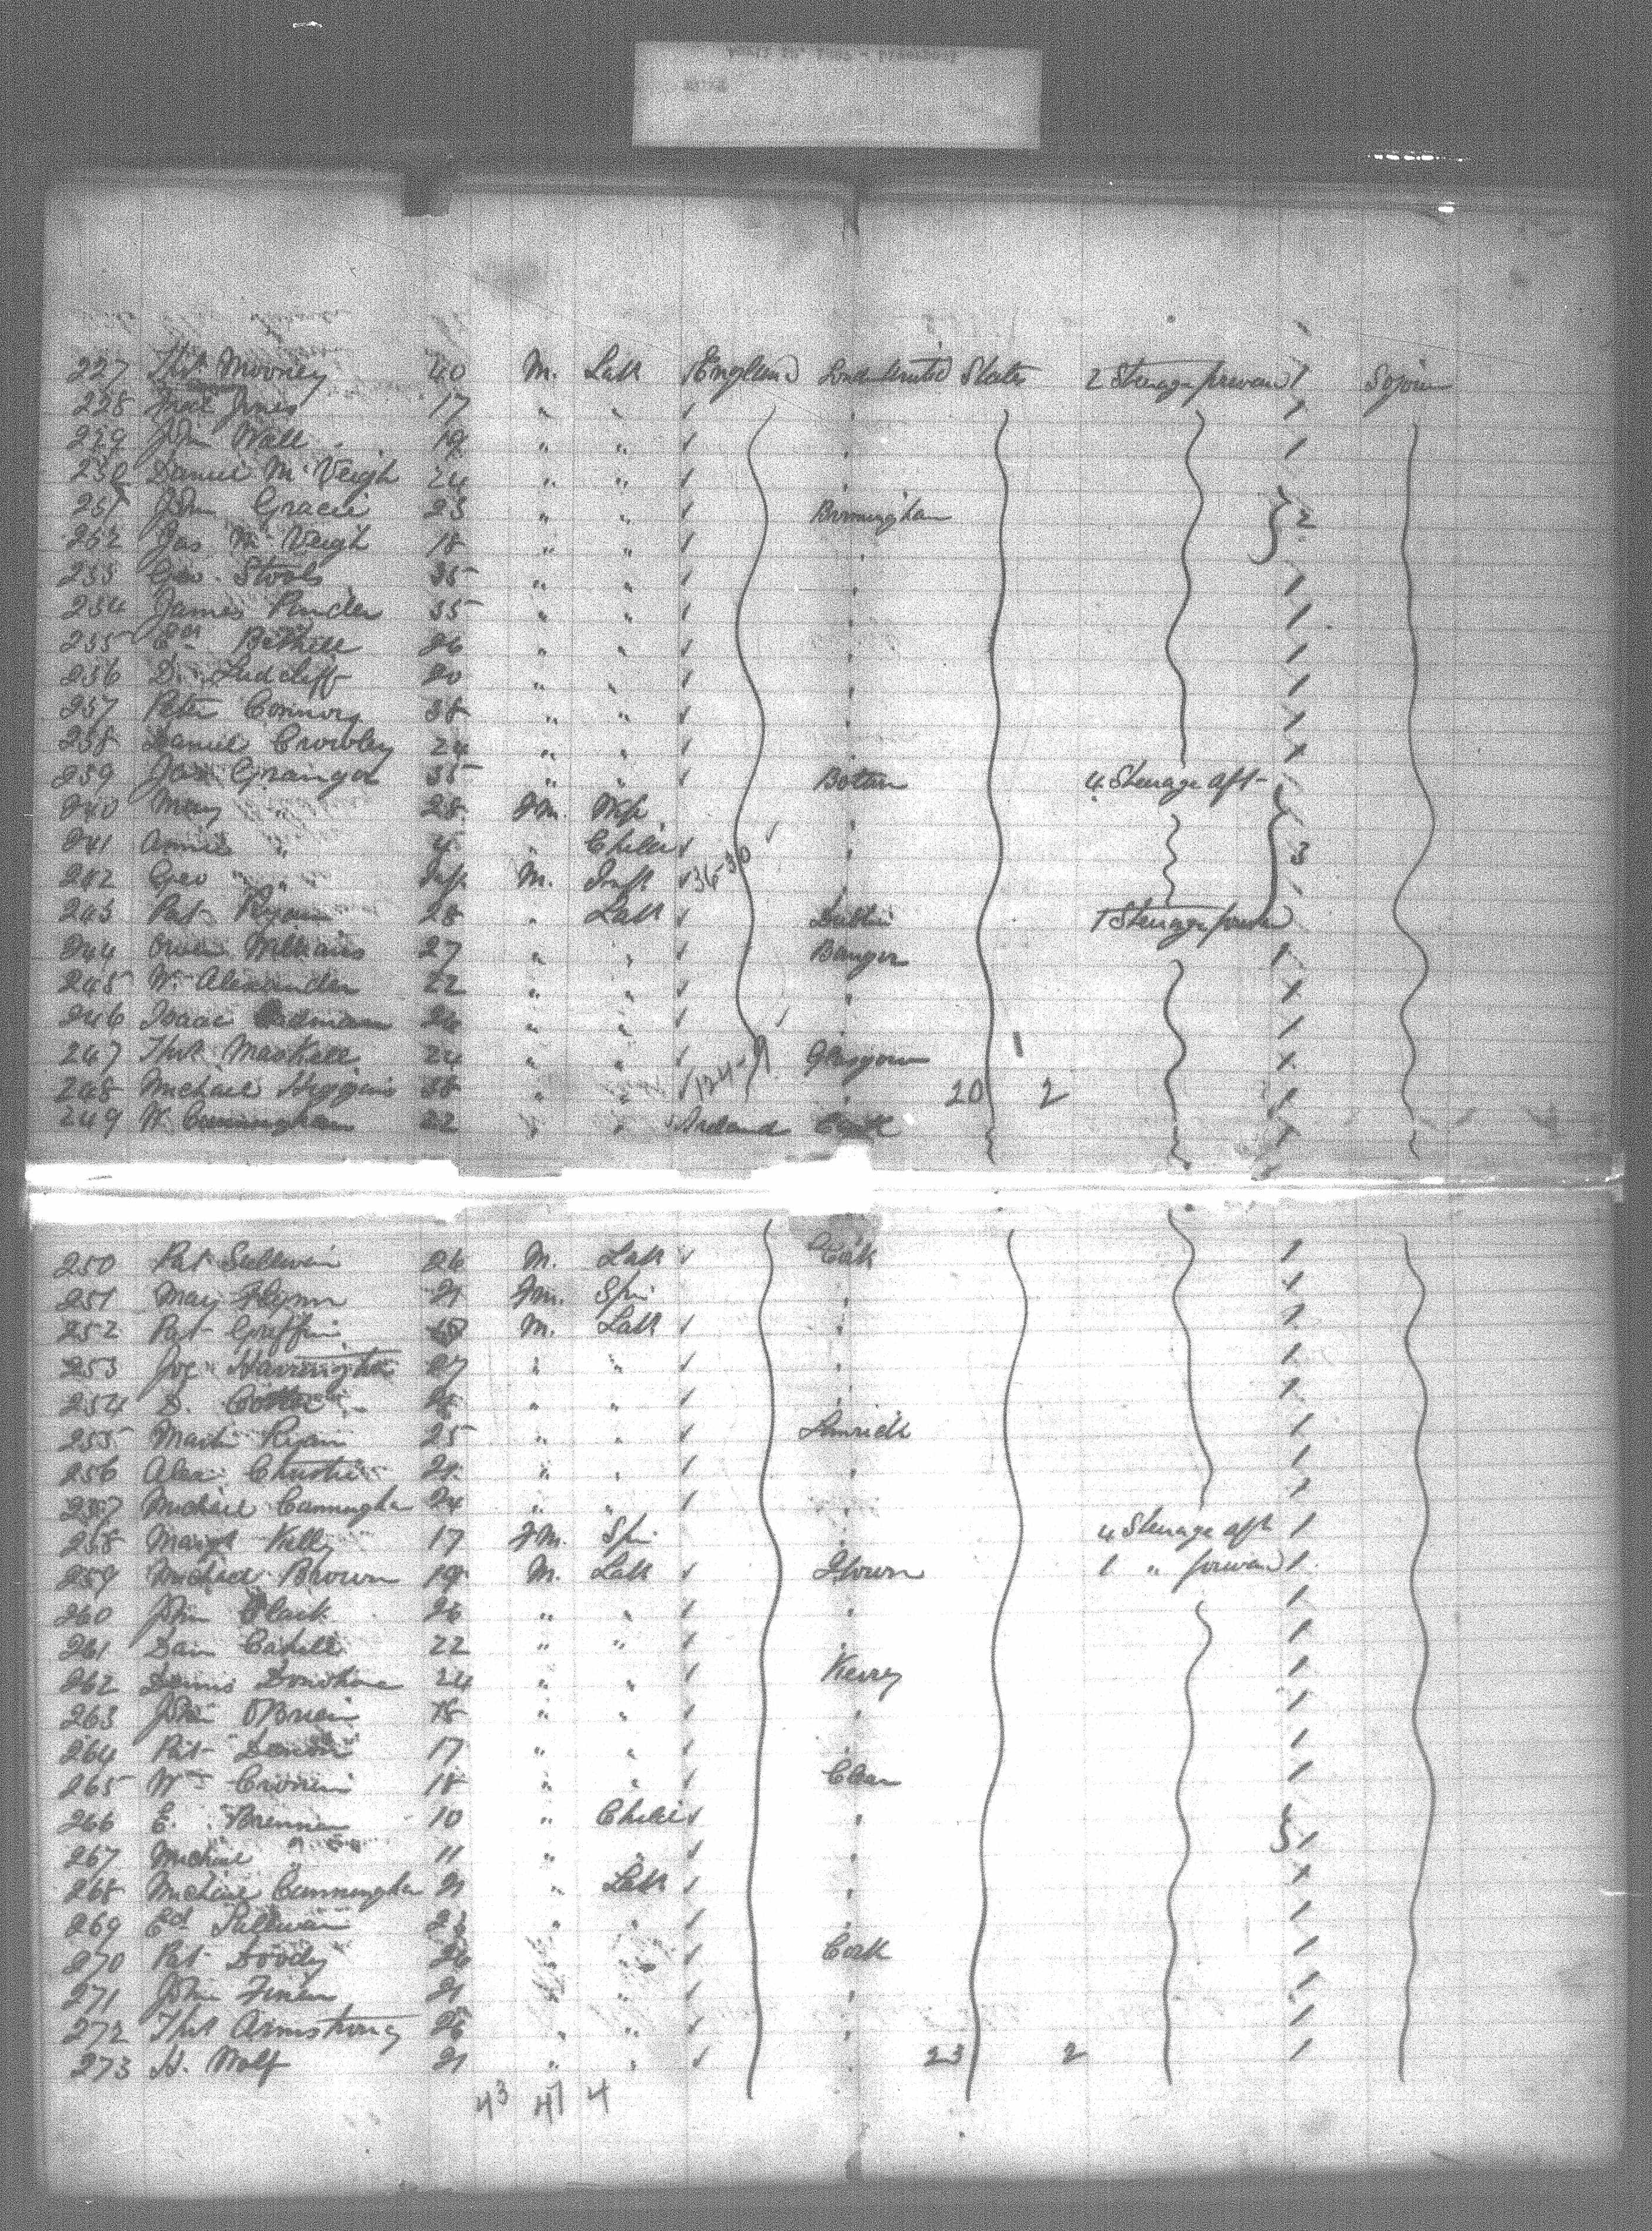 227 Thos Mooney 40 M. Lab England London United States 2 Steerage forward 1 Sojourn
228 Jones 17 " "
229 John Wall 19 " "
230 Daniel McVeigh 24 " "
231 John Gracie 23 " " Birmingham 2
232 Jas McVeigh 18 " "
233 Geo. Stools 35 " "
234 James Pinder 35 " "
235 Bethell 26 " "
236 D. 20 " "
237 Peter 38 " "
238 Daniel Crowley 24 " "
239 Jas Grainger 35 " " Bolton 4 Steerage aft
240 Mary " 28 Fm. Wife
241 Annie " 4 " Child 3
242 Geo " Inft M. Inft 36-30
243 Pat Ryan 28 " Lab Dublin 1 Steerage forward
244 Owen Williams 27 " " Bangor
245 W. Alexander 22 " "
246 Isaac 24 " "
247 Thos 24 " " Glasgow
248 Michael Higgins 38 " " 124-9 20 2
249 W. Cunningham 22 " " Ireland Cork
250 Pat Sullivan 26 M. Lab Cork
251 May Flynn 21 Fm. Spin
252 Pat Griffin M. Lab
253 Joe Harrington 27 " "
254 D. " "
255 Martin Ryan 25 " " Limrick
256 Alex Christie 21 " "
257 Michael Cunningham 24 " "
258 Margt Kelly 17 Fm. Spin 4 Steerage aft 1
259 Michael Brown 19 M. Lab 1 " forward 1
260 John Clark 26 " "
261 Dan Cahill 22 " "
262 Dennis Donohoe 24 " " Kerry
263 John O'Brien 18 " "
264 Pat 17 " "
265 Wm Cronin 18 " " Clare
266 E. Brennan 10 " Child
267 Michael " 11 " "
268 Michael Cunningham 21 " Lab
269 Ed Sullivan 23 " "
270 Pat Doody 26 " " Cork
271 John 21 " "
272 Thos Armstrong 26 " "
273 H. Wolf 21 " " 23 2
43 47 4